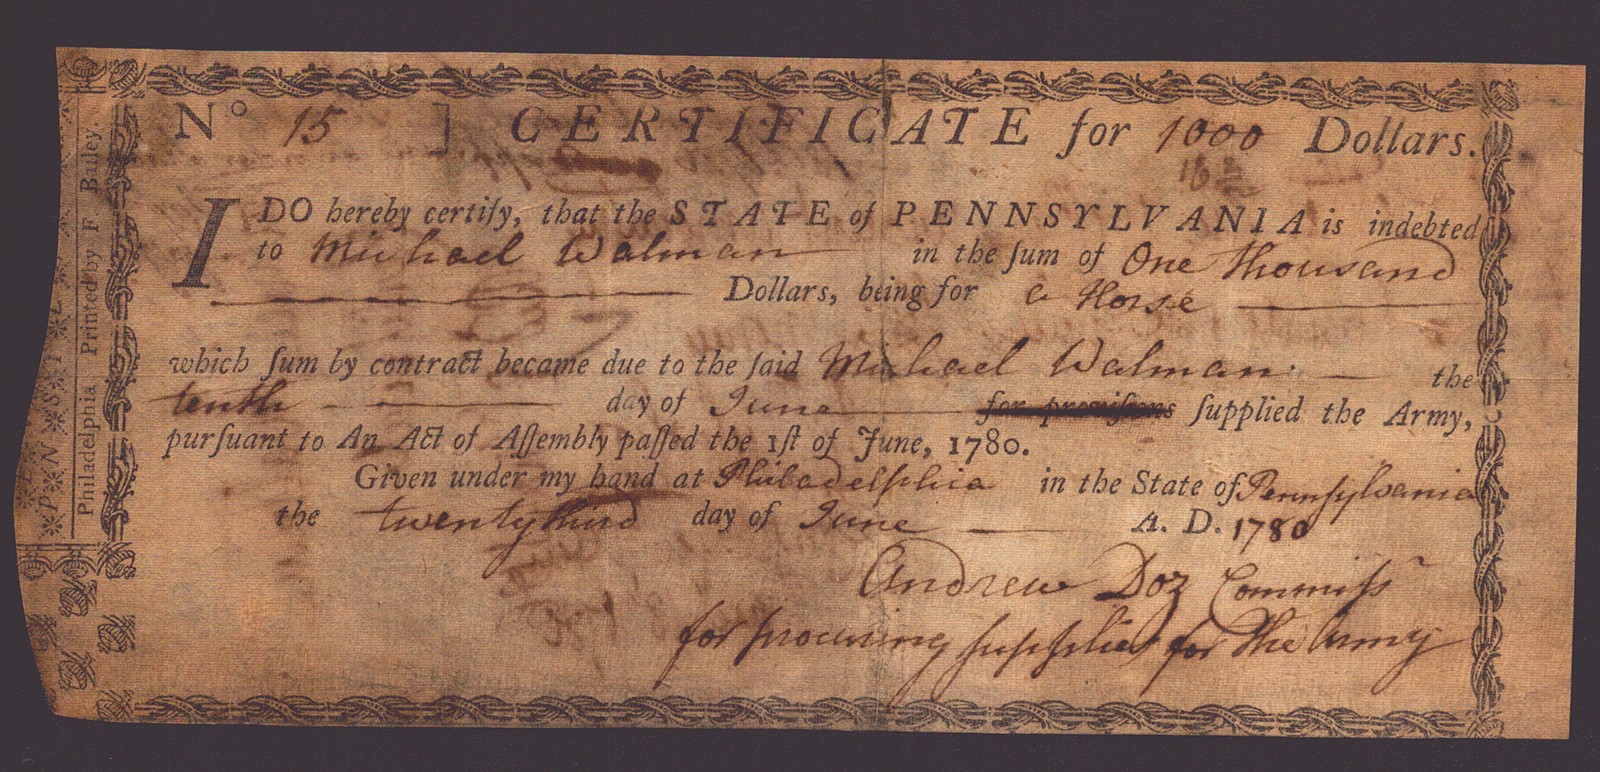 No 15 ] CERTIFICATE for 1000 Dollars.
I DO hereby certify, that the STATE of PENNSYLVANIA is indebted
to Michael Walman in the ſum of One Thousand
Dollars, being for a Horse
which ſum by contract became due to the ſaid Michael Walman the
tenth day of June for proviſions ſupplied the Army,
purſuant to An Act of Aſſembly paſſed the 1ſt of June, 1780.
Given under my hand at Philadelphia in the State of Pennsylvania
the twenty third day of June A. D. 1780
Andrew Doz Commiſsr
for procuring supplies for the Army
Philadelphia Printed by F Bailey.